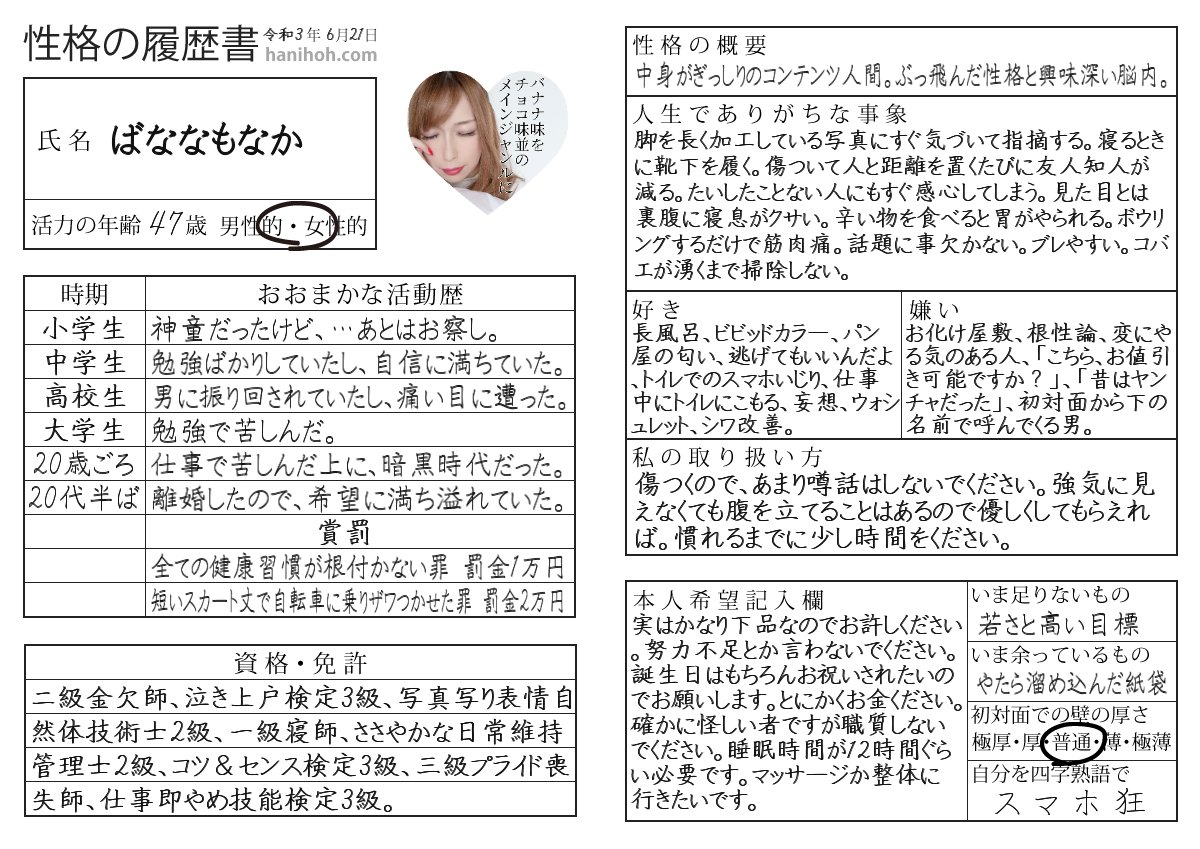 性格の履歴書 令和3年 6月21日
hanihoh.com
氏名 ばななもなか
活力の年齢 47歳 男性的・女性的
バナナ味を
チョコ味並の
メインジャンルに
時期 おおまかな活動歴
小学生 神童だったけど、…あとはお察し。
中学生 勉強ばかりしていたし、自信に満ちていた。
高校生 男に振り回されていたし、痛い目に遭った。
大学生 勉強で苦しんだ。
20歳ごろ 仕事で苦しんだ上に、暗黒時代だった。
20代半ば 離婚したので、希望に満ち溢れていた。
賞罰
全ての健康習慣が根付かない罪 罰金1万円
短いスカート丈で自転車に乗りザワつかせた罪 罰金2万円
資格・免許
二級金欠師、泣き上戸検定3級、写真写り表情自
然体技術士2級、一級寝師、ささやかな日常維持
管理士2級、コツ＆センス検定3級、三級プライド喪
失師、仕事即やめ技能検定3級。
性格の概要
中身がぎっしりのコンテンツ人間。ぶっ飛んだ性格と興味深い脳内。
人生でありがちな事象
脚を長く加工している写真にすぐ気づいて指摘する。寝るとき
に靴下を履く。傷ついて人と距離を置くたびに友人知人が
減る。たいしたことない人にもすぐ感心してしまう。見た目とは
裏腹に寝息がクサい。辛い物を食べると胃がやられる。ボウリ
ングするだけで筋肉痛。話題に事欠かない。ブレやすい。コバ
エが湧くまで掃除しない。
好き
長風呂、ビビッドカラー、パン
屋の匂い、逃げてもいいんだよ
、トイレでのスマホいじり、仕事
中にトイレにこもる、妄想、ウォシ
ュレット、シワ改善。
嫌い
お化け屋敷、根性論、変にや
る気のある人、「こちら、お値引
き可能ですか？」、「昔はヤン
チャだった」、初対面から下の
名前で呼んでくる男。
私の取り扱い方
傷つくので、あまり噂話はしないでください。強気に見
えなくても腹を立てることはあるので優しくしてもらえれ
ば。慣れるまでに少し時間をください。
本人希望記入欄
実はかなり下品なのでお許しください
。努力不足とか言わないでください。
誕生日はもちろんお祝いされたいの
でお願いします。とにかくお金ください。
確かに怪しい者ですが職質しない
でください。睡眠時間が12時間ぐら
い必要です。マッサージか整体に
行きたいです。
いま足りないもの
若さと高い目標
いま余っているもの
やたら溜め込んだ紙袋
初対面での壁の厚さ
極厚・厚・普通・薄・極薄
自分を四字熟語で
スマホ狂